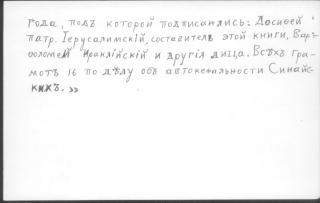 года, подъ которой подписались: Досиѳей
патр. Іерусалимскій, составитель этой книги, Вар-
ѳоломей Ираклійскій и другія лица. Всѣхъ гра-
мотъ 16 по дѣлу объ автокефальности Синайс-
кихъ. »